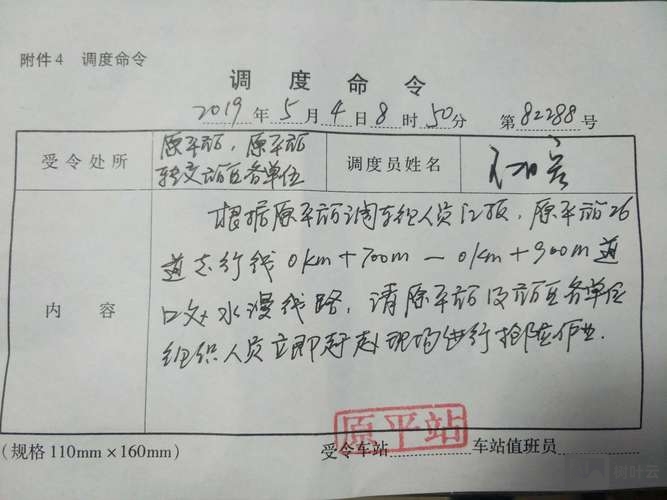 附件4 调度命令
调度命令
2019年5月4日8时50分 第82288号
受令处所 原平站，原平站转交站区各单位 调度员姓名
内容
根据原平站调车组人员汇报，原平站26
道走行线0km+700m—0km+900m道
口处水漫线路，请原平站及站区各单位
组织人员立即赶赴现场进行抢险作业.
原平站
(规格110mm×160mm) 受令车站 车站值班员
树叶云